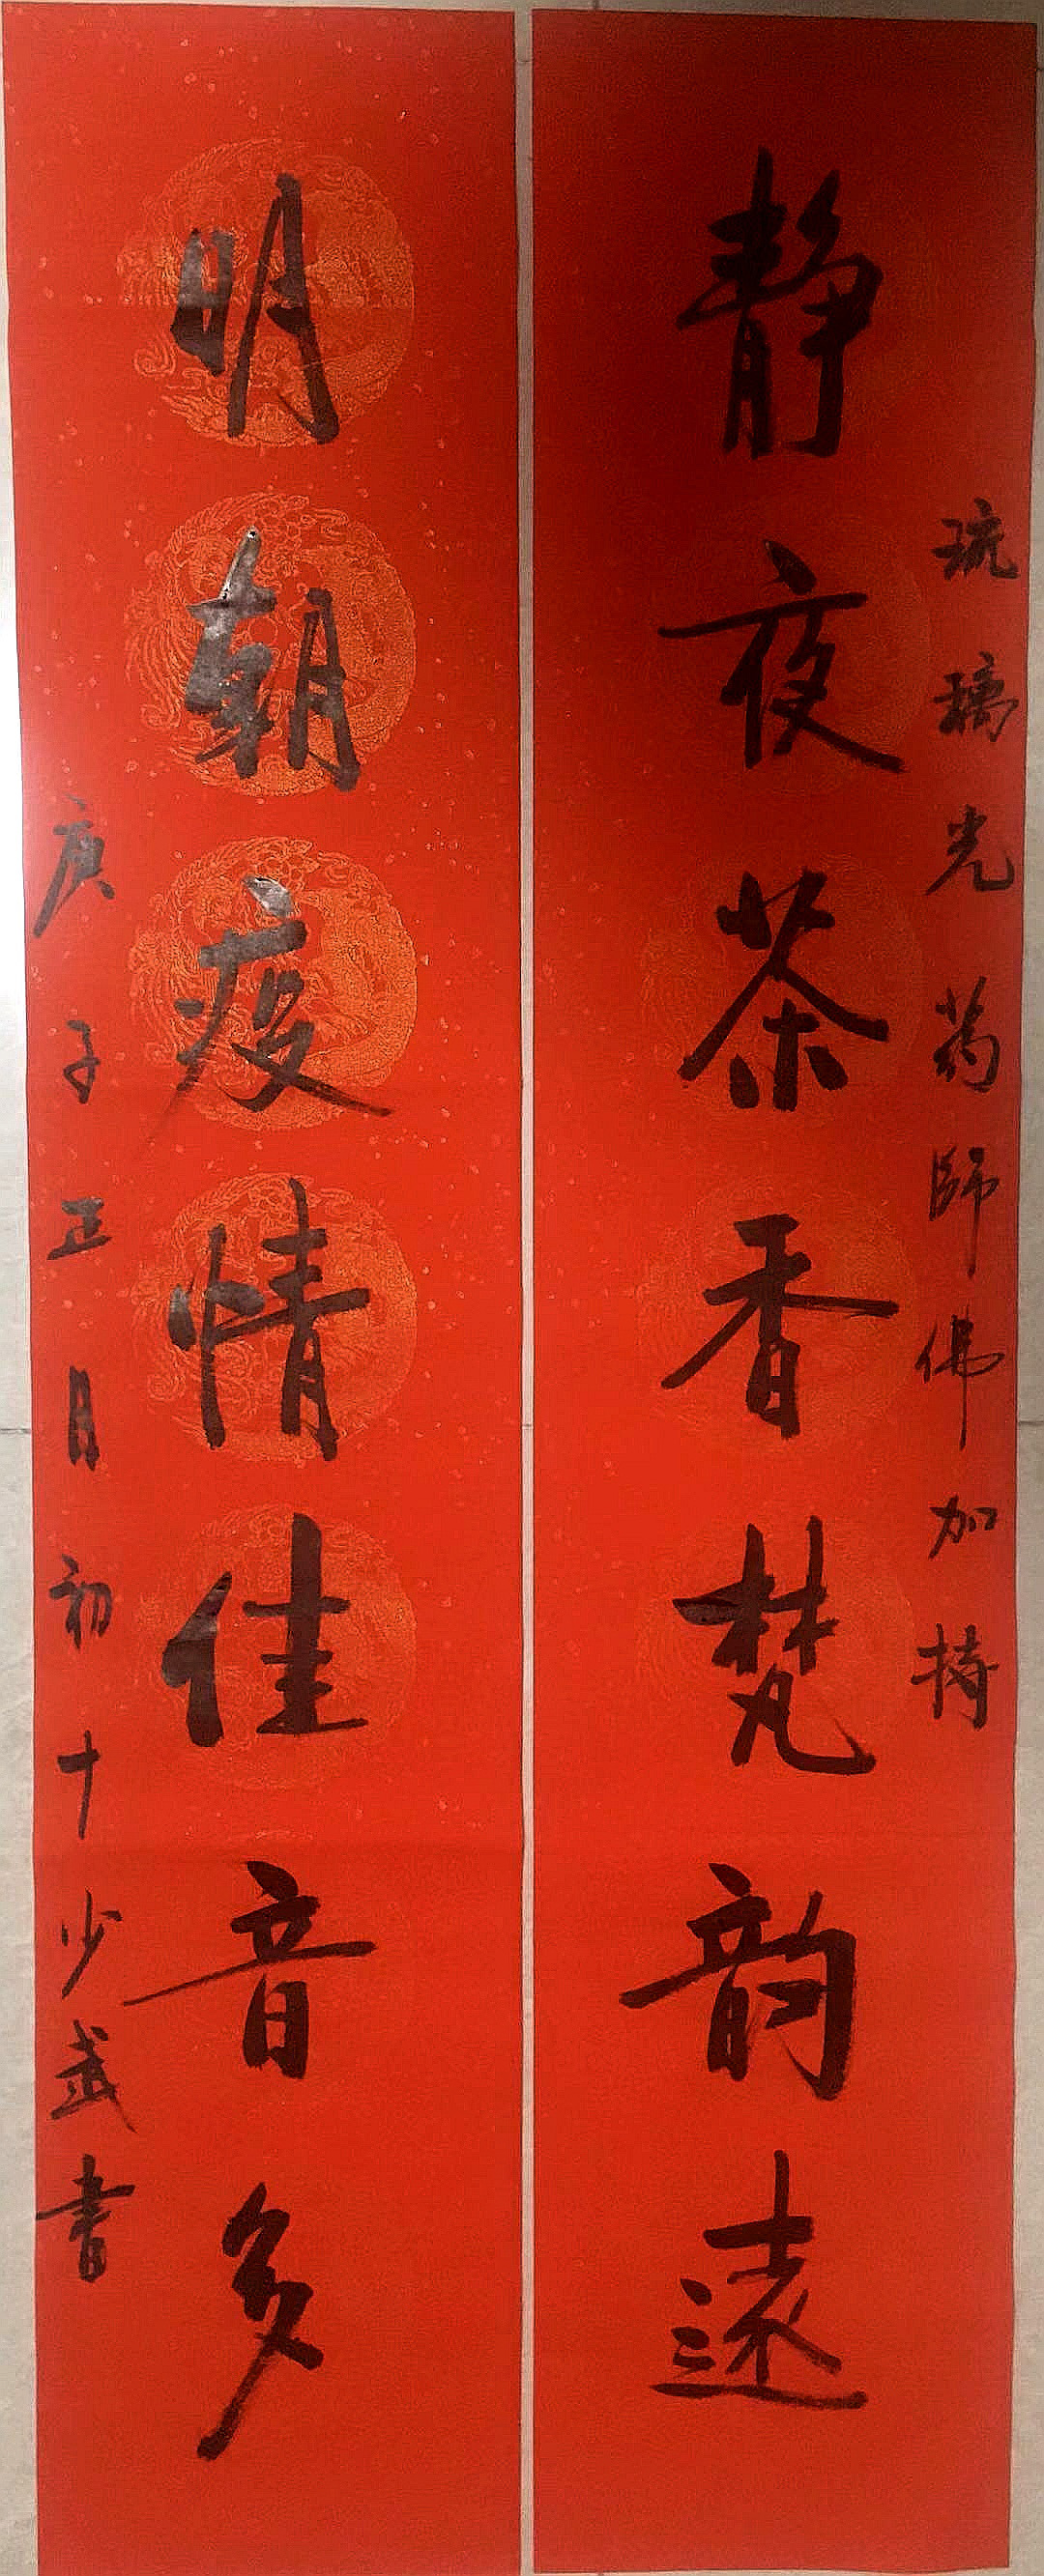 琉璃光药師佛加持
静夜茶香梵韵遠
明朝疫情佳音多
庚子正月初十少武書